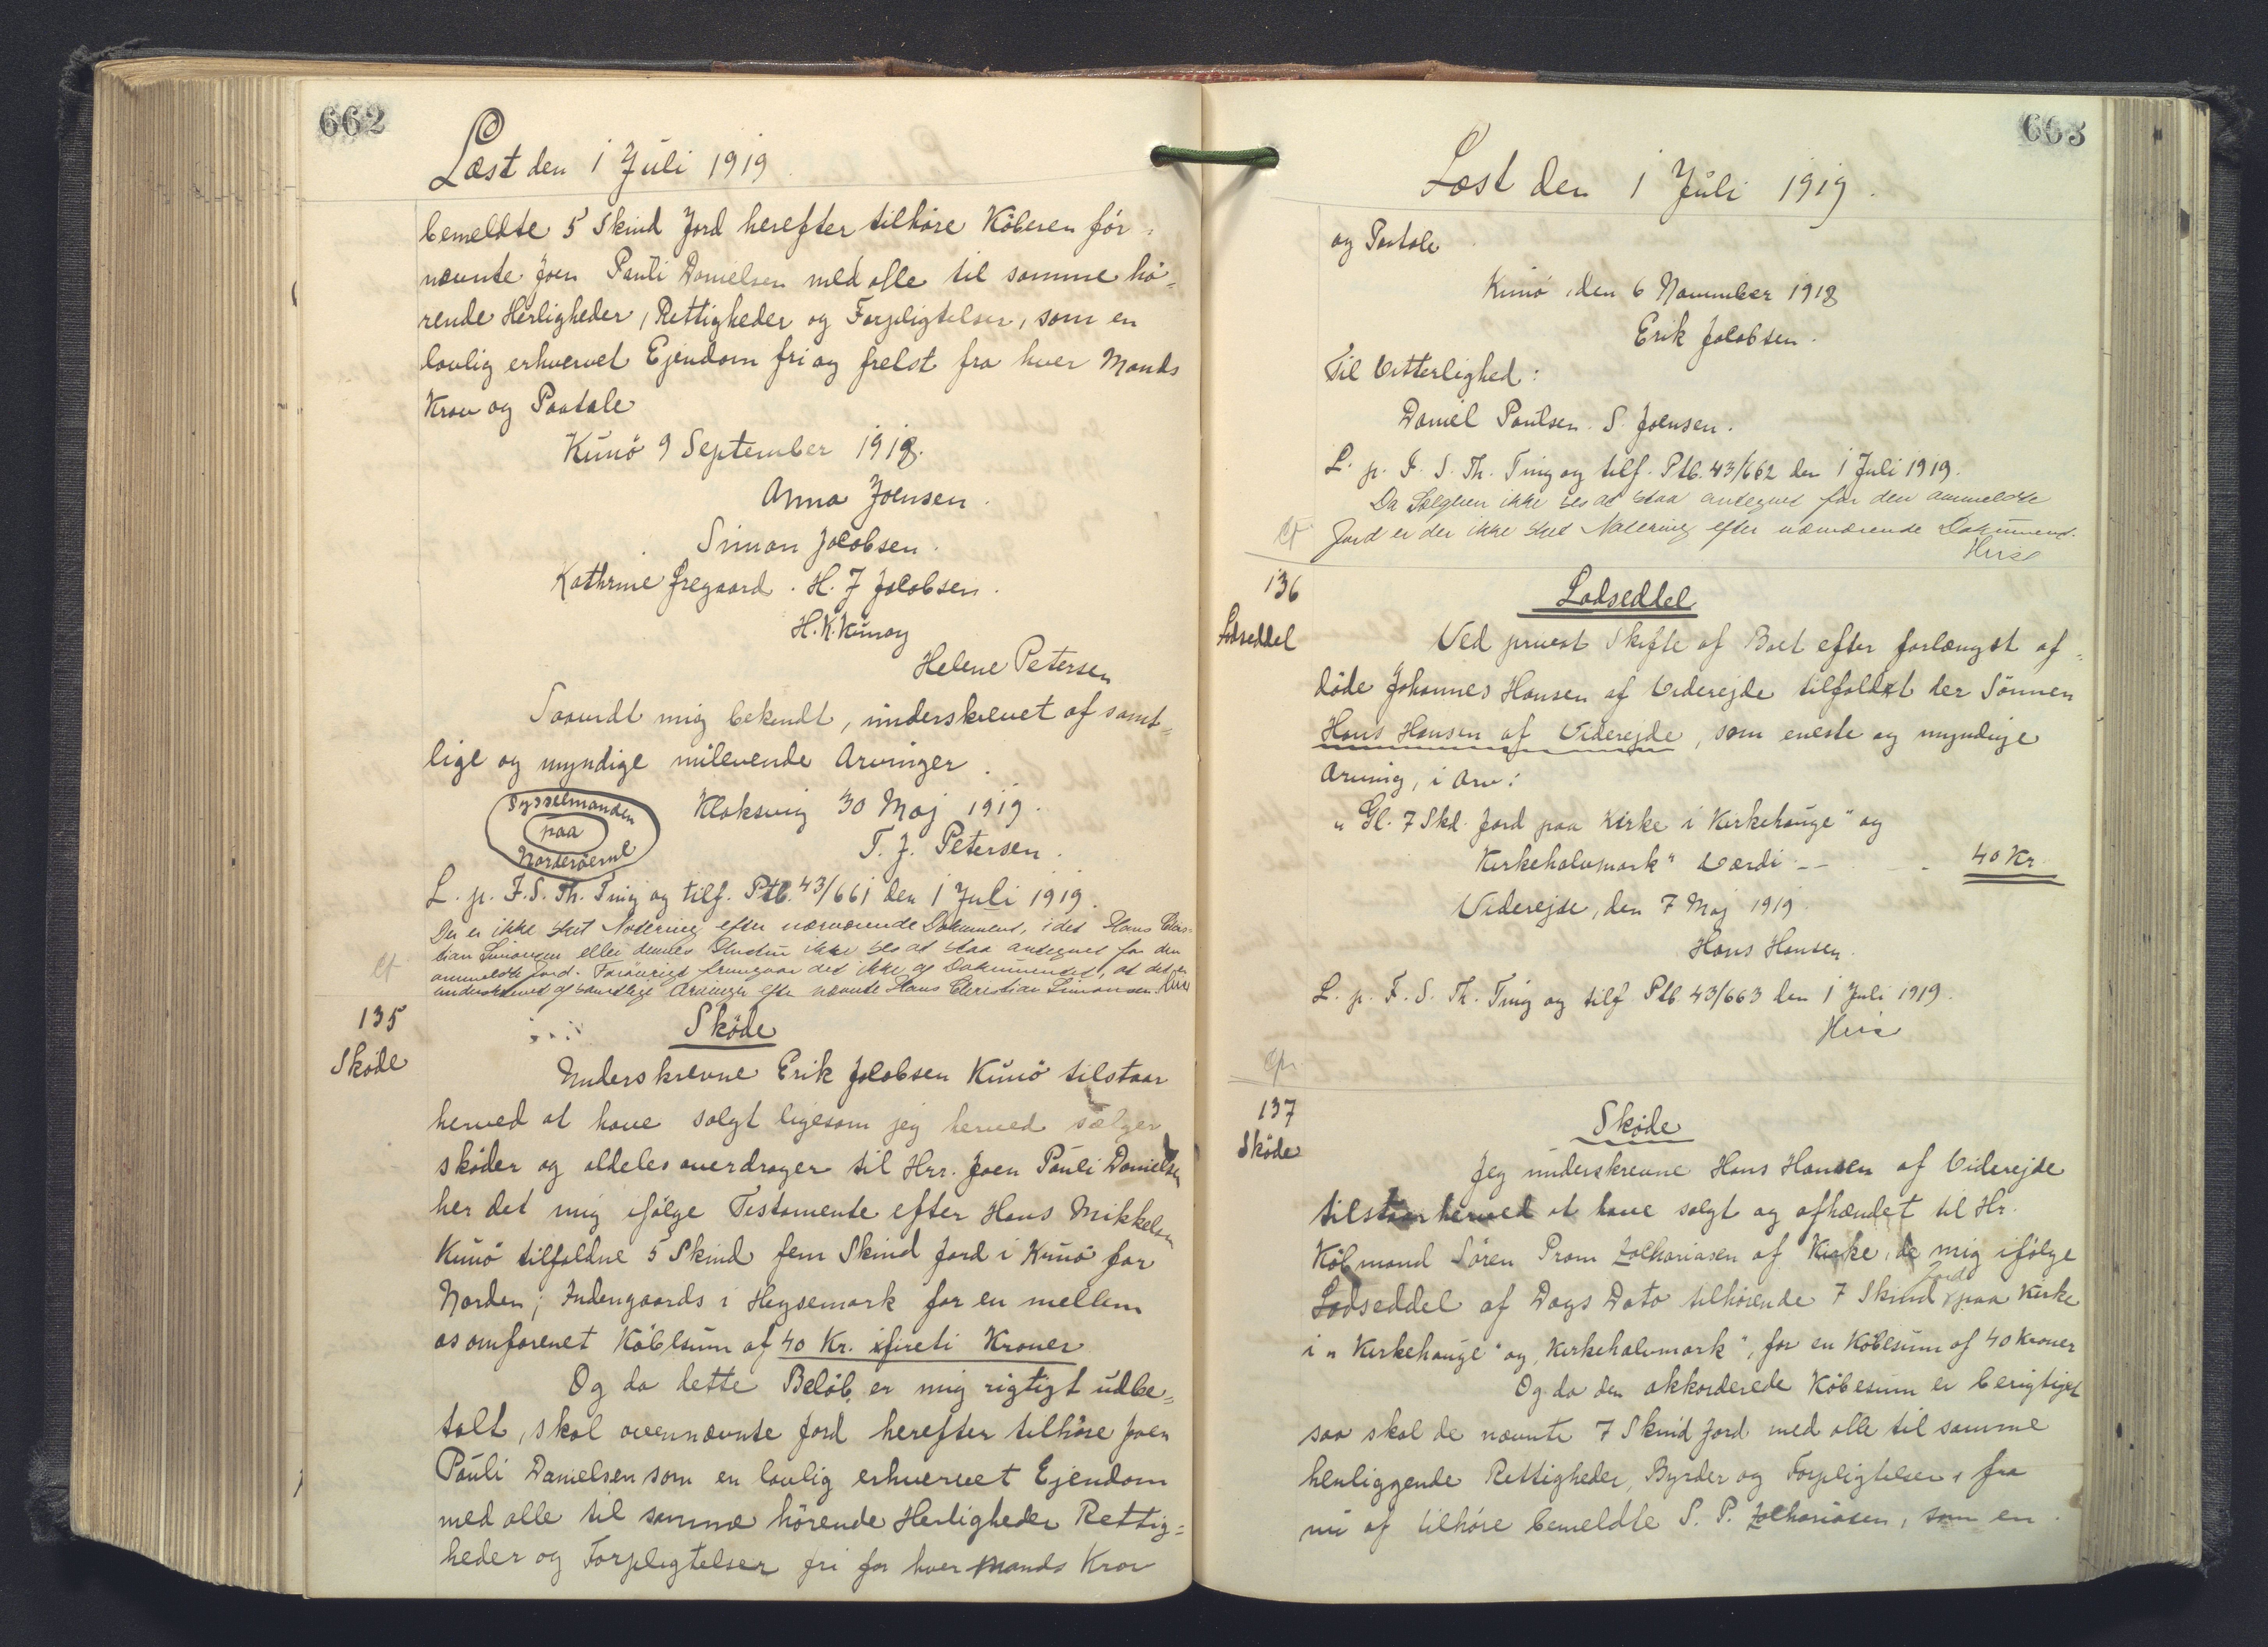 662
Læst den 1 Juli 1919.
bemeldte 5 Skind Jord herefter tilhöre Köberen för=
nævnte Joen Pauli Danielsen med alle til samme hö=
rende Herligheder, Rettigheder og Forpligtelser, som en
lovlig erhvervet Ejendom fri og frelst fra hver Mands
Krav og Paatale
Kunö 9 September 1918.
Anna Joensen.
Simon Jacobsen.
Kathrine Gregaard. H. J Jacobsen.
H. K. Kunoy
Helene Petersen
Saavidt mig bekendt, underskrevet af samt=
lige og myndige nulevende Arvinger.
Sysselmanden
paa
Norderöerne
Klaksvig 30 Maj 1919.
T. J. Petersen.
L. p. F. S. Th. Ting og tilf. Ptb. 43/661 den 1 Juli 1919.
Der er ikke sket Notering efter nærværende Dokument, idet Hans Chris=
tian Simonsen eller dennes Hustru ikke ses at staa antegnet for den
anmeldte Jord. Forövrigt fremgaar det ikke af Dokumentet, at det er
underskrevet af samtlige Arvinger efter nævnte Hans Christian Simonsen.
135
Sköde
Sköde
Underskrevne Erik Jacobsen Kunö tilstaar
herved at have solgt ligesom jeg herved sælger
sköder og aldeles overdrager til Hrr. Joen Pauli Danielsen
her det mig ifölge Testamente efter Hans Mikkelsen
Kunö tilfaldne 5 Skind fem Skind Jord i Kunö for
Norden; Indengaards i Heysemark for en mellem
os omforenet Köbesum af 40 Kr. fireti Kroner
Og da dette Belöb er mig rigtigt udbe=
talt, skal ovennævnte Jord herefter tilhöre Joen
Pauli Danielsen som en lovlig erhvervet Ejendom
med alle til samme hörende Herligheder Rettig=
heder og Forpligtelser fri for hver Mands Krav
663
Læst den 1 Juli 1919.
og Paatale
Kunö, den 6 November 1918
Erik Jacobsen.
Til Vitterlighed:
Daniel Poulsen. S. Joensen.
L. p. F. S. Th. Ting og tilf. Ptb. 43/662 den 1 Juli 1919.
Da Sælgeren ikke ses at staa antegnet for den anmeldte
Jord er der ikke sket Notering efter nærværende Dokument.
136
Lodseddel
Lodseddel
Ved privat Skifte af Boet efter forlængst af=
döde Johannes Hansen af Viderejde tilfaldt der Sönnen
Hans Hansen af Viderejde, som eneste og myndige
Arving, i Arv:
"Gl. 7 Skd. Jord paa Kirke i Kirkehauge" og
Kirkehalvmark" Værdi - - - 40 Kr.
Viderejde, den 7 Maj 1919.
Hans Hansen.
L. p. F. S. Th. Ting og tilf. Ptb 43/663 den 1 Juli 1919.
137
Sköde
Sköde
Jeg underskrevne Hans Hansen af Viderejde
tilstaar herved at have solgt og afhændet til Hr.
Köbmand Sören Prom Zachariasen af Kirke, de mig ifölge
Lodseddel af Dags Dato tilhörende 7 Skind Jord paa Kirke
i "Kirkehauge" og "Kirkehalvmark", for en Köbesum af 40 Kroner
Og da den akkorderede Köbesum er berigtiget
saa skal de nævnte 7 Skind Jord med alle til samme
henliggende Rettigheder, Byrder og Forpligtelser, fra
nu af tilhöre bemeldte S. P. Zachariasen, som en